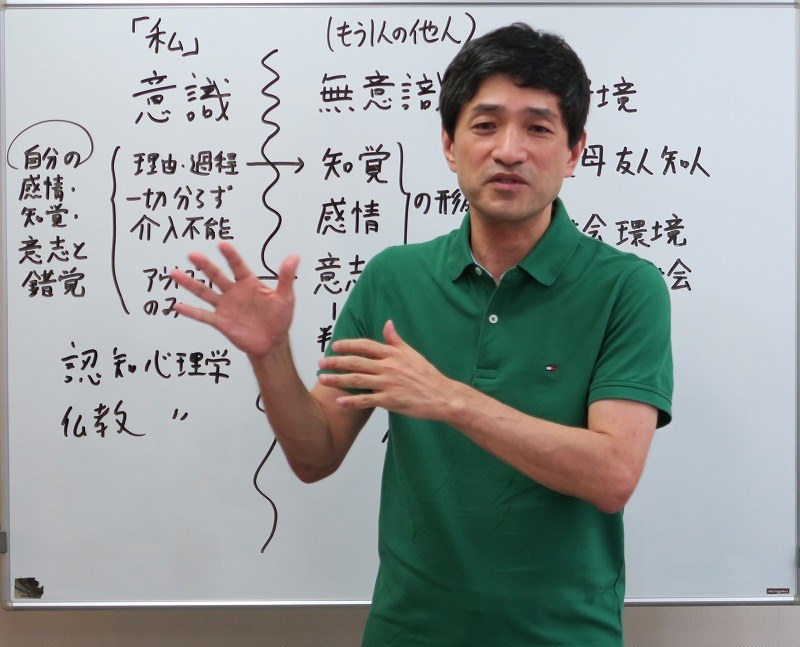 「私」
(もう1人の他人)
意識
無意識
境
自分の
感情・
知覚・
意志と
錯覚
理由・過程
一切分らず
介入不能
のみ
知覚
感情
意志
の形
母 友人知人
会 環境
会
認知心理学
仏教 〃